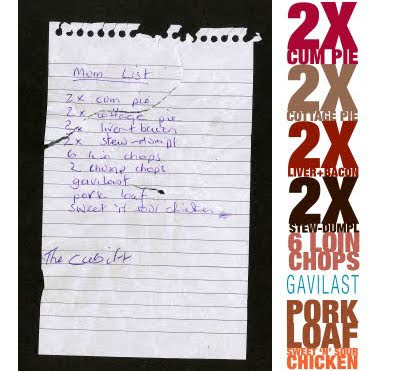 Mum List
2x cum pie
2x cottage pie
2x liver+bacon
2x stew-dumpl
6 loin chops
2 chump chops
gavilast
pork loaf
sweet 'n' sour chicken
The Cubitt
2X
CUM PIE
2X
COTTAGE PIE
2X
LIVER+BACON
2X
STEW-DUMPL
6 LOIN
CHOPS
GAVILAST
PORK
LOAF
SWEET 'N' SOUR
CHICKEN